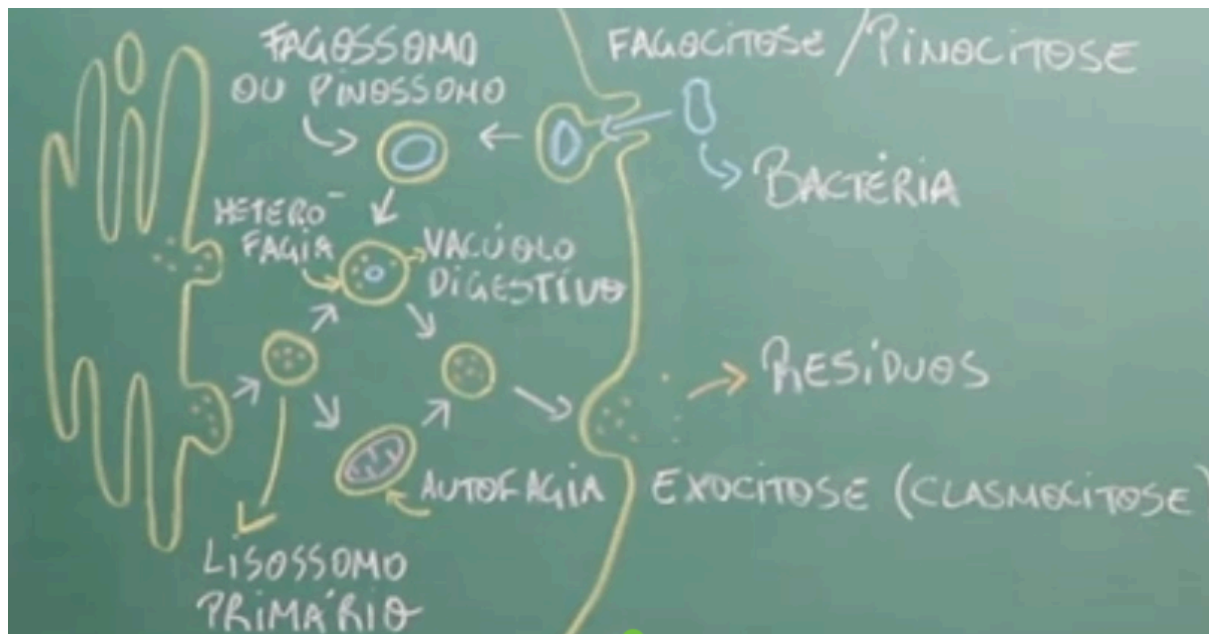 FAGOSSOMO
OU PINOSSOMO
FAGOCITOSE / PINOCITOSE
BACTÉRIA
HETERO-
FAGIA
VACÚOLO
DIGESTIVO
RESÍDUOS
AUTOFAGIA
EXOCITOSE (CLASMOCITOSE)
LISOSSOMO
PRIMÁRIO